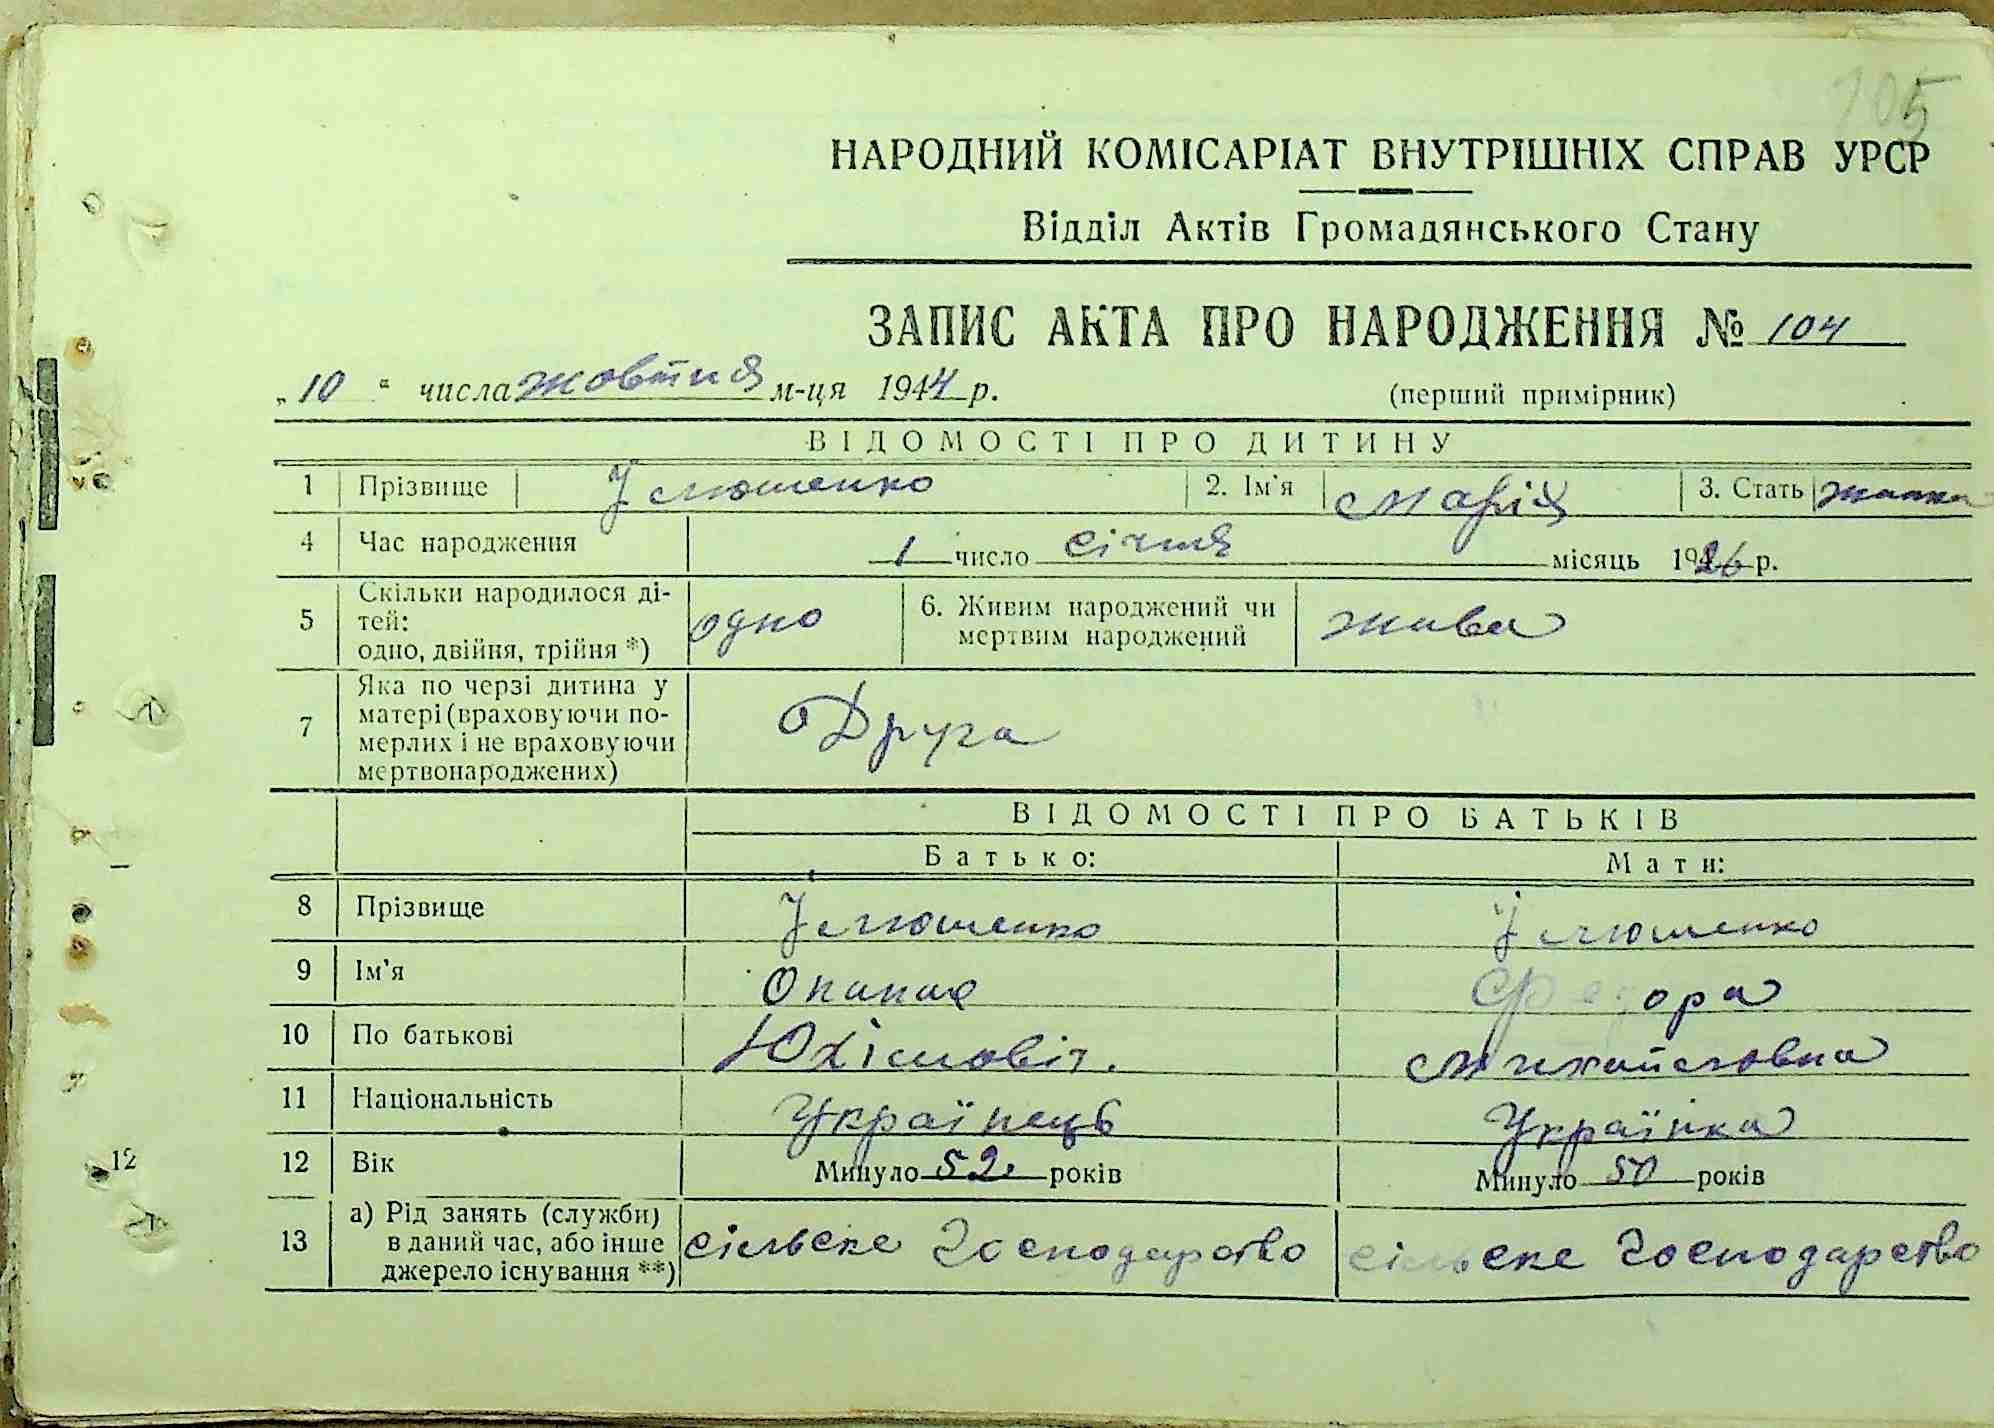 105
НАРОДНИЙ КОМІСАРІАТ ВНУТРІШНІХ СПРАВ УРСР
Відділ Актів Громадянського Стану
ЗАПИС АКТА ПРО НАРОДЖЕННЯ № 104
„10“ числа жовтня м-ця 1944 р. (перший примірник)
ВІДОМОСТІ ПРО ДИТИНУ
1 Прізвище Ілюшенко 2. Ім'я Марія 3. Стать жинка
4 Час народження 1 число січня місяць 1926 р.
5 Скільки народилося ді-
тей:
одно, двійня, трійня *) одно 6. Живим народжений чи
мертвим народжений жива
7 Яка по черзі дитина у
матері (враховуючи по-
мерлих і не враховуючи
мертвонароджених) Друга
ВІДОМОСТІ ПРО БАТЬКІВ
Батько: Мати:
8 Прізвище Ілюшенко Ілюшенко
9 Ім'я Опанас Федора
10 По батькові Юхімовіч. Михайловна
11 Національність Українець Українка
12 Вік Минуло 52 років Минуло 50 років
13 а) Рід занять (служби)
в даний час, або інше
джерело існування **) сільске господарство сільске господарство
12